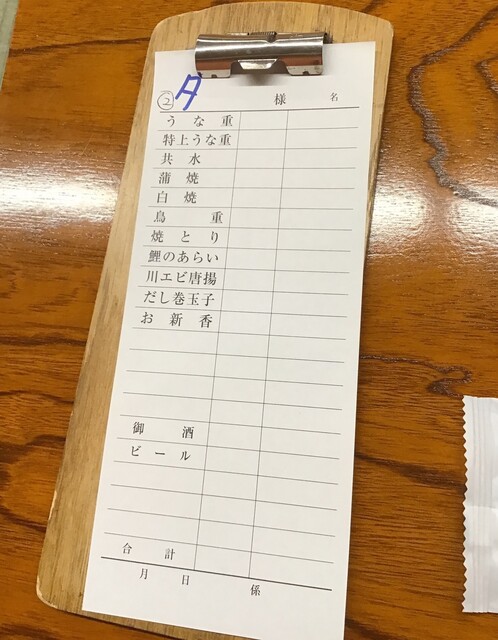 ② 夕
様 名
うな重
特上うな重
共水
蒲焼
白焼
鳥重
焼とり
鯉のあらい
川エビ唐揚
だし巻玉子
お新香
御酒
ビール
合計
月 日 係